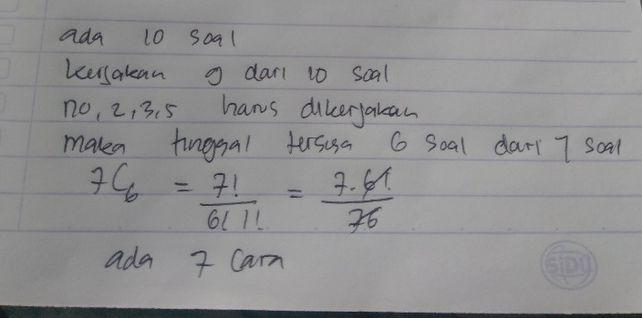 ada 10 soal
kerjakan 9 dari 10 soal
no, 2,3,5 harus dikerjakan
maka tinggal tersisa 6 soal dari 7 soal
7C6 = 7! / 6! 1! = 7.6! / 76
ada 7 cara
SiDU